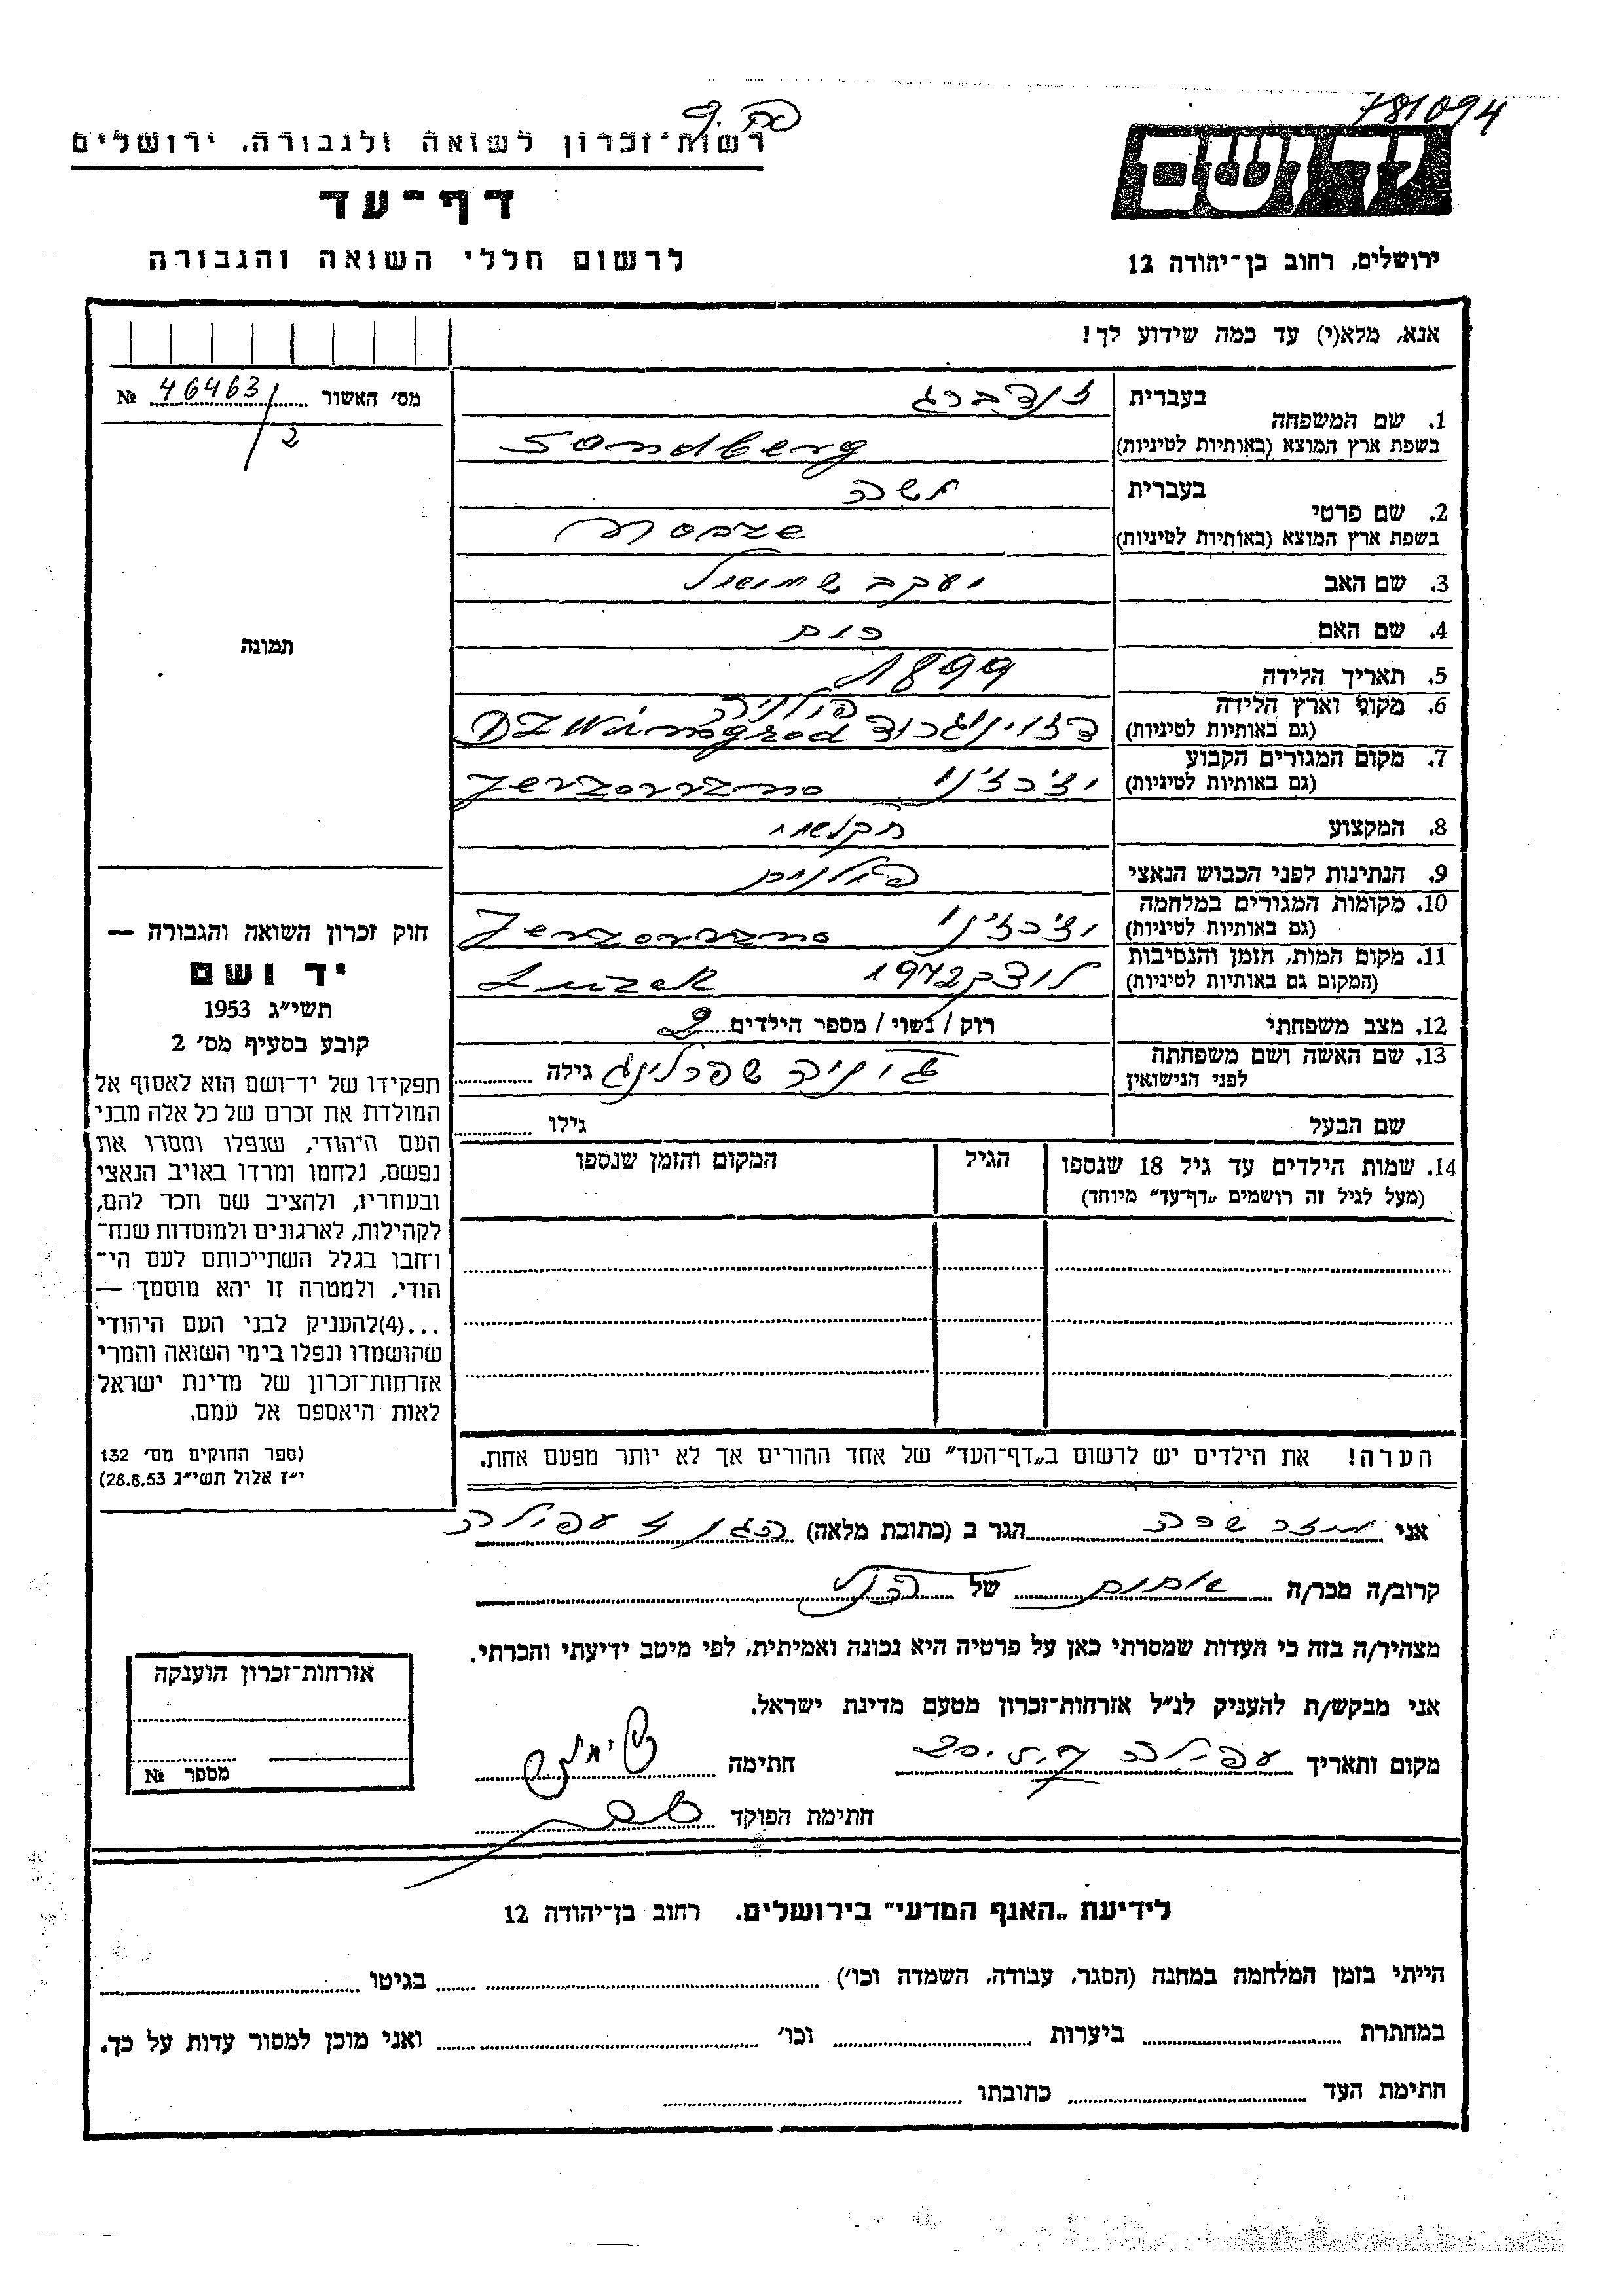 781094
רשות־זכרון לשואה ולגבורה, ירושלים
דף־עד
לרשום חללי השואה והגבורה
יד ושם
ירושלים, רחוב בן־יהודה 12
אנא, מלא(י) עד כמה שידוע לך!
מס׳ האשור 46463/2 №
1. שם המשפחה
בעברית זנדברג
בשפת ארץ המוצא (באותיות לטיניות) Sandberg
2. שם פרטי
בעברית משה
בשפת ארץ המוצא (באותיות לטיניות)
3. שם האב יעקב שמואל
4. שם האם
5. תאריך הלידה 1899
6. מקום וארץ הלידה
(גם באותיות לטיניות) פולניה
7. מקום המגורים הקבוע
(גם באותיות לטיניות)
8. המקצוע חקלאי
9. הנתינות לפני הכבוש הנאצי פולנית
10. מקומות המגורים במלחמה
(גם באותיות לטיניות)
11. מקום המות, הזמן והנסיבות
(המקום גם באותיות לטיניות) לוצק 1942 Luzek
12. מצב משפחתי רוק / נשוי / מספר הילדים 2
13. שם האשה ושם משפחתה
לפני הנישואין גילה
שם הבעל גילו
14. שמות הילדים עד גיל 18 שנספו
(מעל לגיל זה רושמים „דף־עד״ מיוחד)
הגיל
המקום והזמן שנספו
הערה! את הילדים יש לרשום ב„דף־העד״ של אחד ההורים אך לא יותר מפעם אחת.
תמונה
חוק זכרון השואה והגבורה —
יד ושם
תשי״ג 1953
קובע בסעיף מס׳ 2
תפקידו של יד־ושם הוא לאסוף אל
המולדת את זכרם של כל אלה מבני
העם היהודי, שנפלו ומסרו את
נפשם, נלחמו ומרדו באויב הנאצי
ובעוזריו, ולהציב שם וזכר להם,
לקהילות, לארגונים ולמוסדות שנח־
רחבו בגלל השתייכותם לעם הי־
הודי, ולמטרה זו יהא מוסמך —
...(4)להעניק לבני העם היהודי
שהושמדו ונפלו בימי השואה והמרי
אזרחות־זכרון של מדינת ישראל
לאות היאספם אל עמם.
(ספר החוקים מס׳ 132
י״ז אלול תשי״ג 28.8.53)
אני שרה הגר ב (כתובת מלאה) עפולה
קרוב/ה מכר/ה של
מצהיר/ה בזה כי העדות שמסרתי כאן על פרטיה היא נכונה ואמיתית, לפי מיטב ידיעתי והכרתי.
אני מבקש/ת להעניק לנ״ל אזרחות־זכרון מטעם מדינת ישראל.
מקום ותאריך עפולה חתימה
חתימת הפוקד
אזרחות־זכרון הוענקה
מספר №
לידיעת „האגף המדעי״ בירושלים. רחוב בן־יהודה 12
הייתי בזמן המלחמה במחנה (הסגר, עבודה, השמדה וכו׳) בגיטו
במחתרת ביערות וכו׳ ואני מוכן למסור עדות על כך.
חתימת העד כתובתו